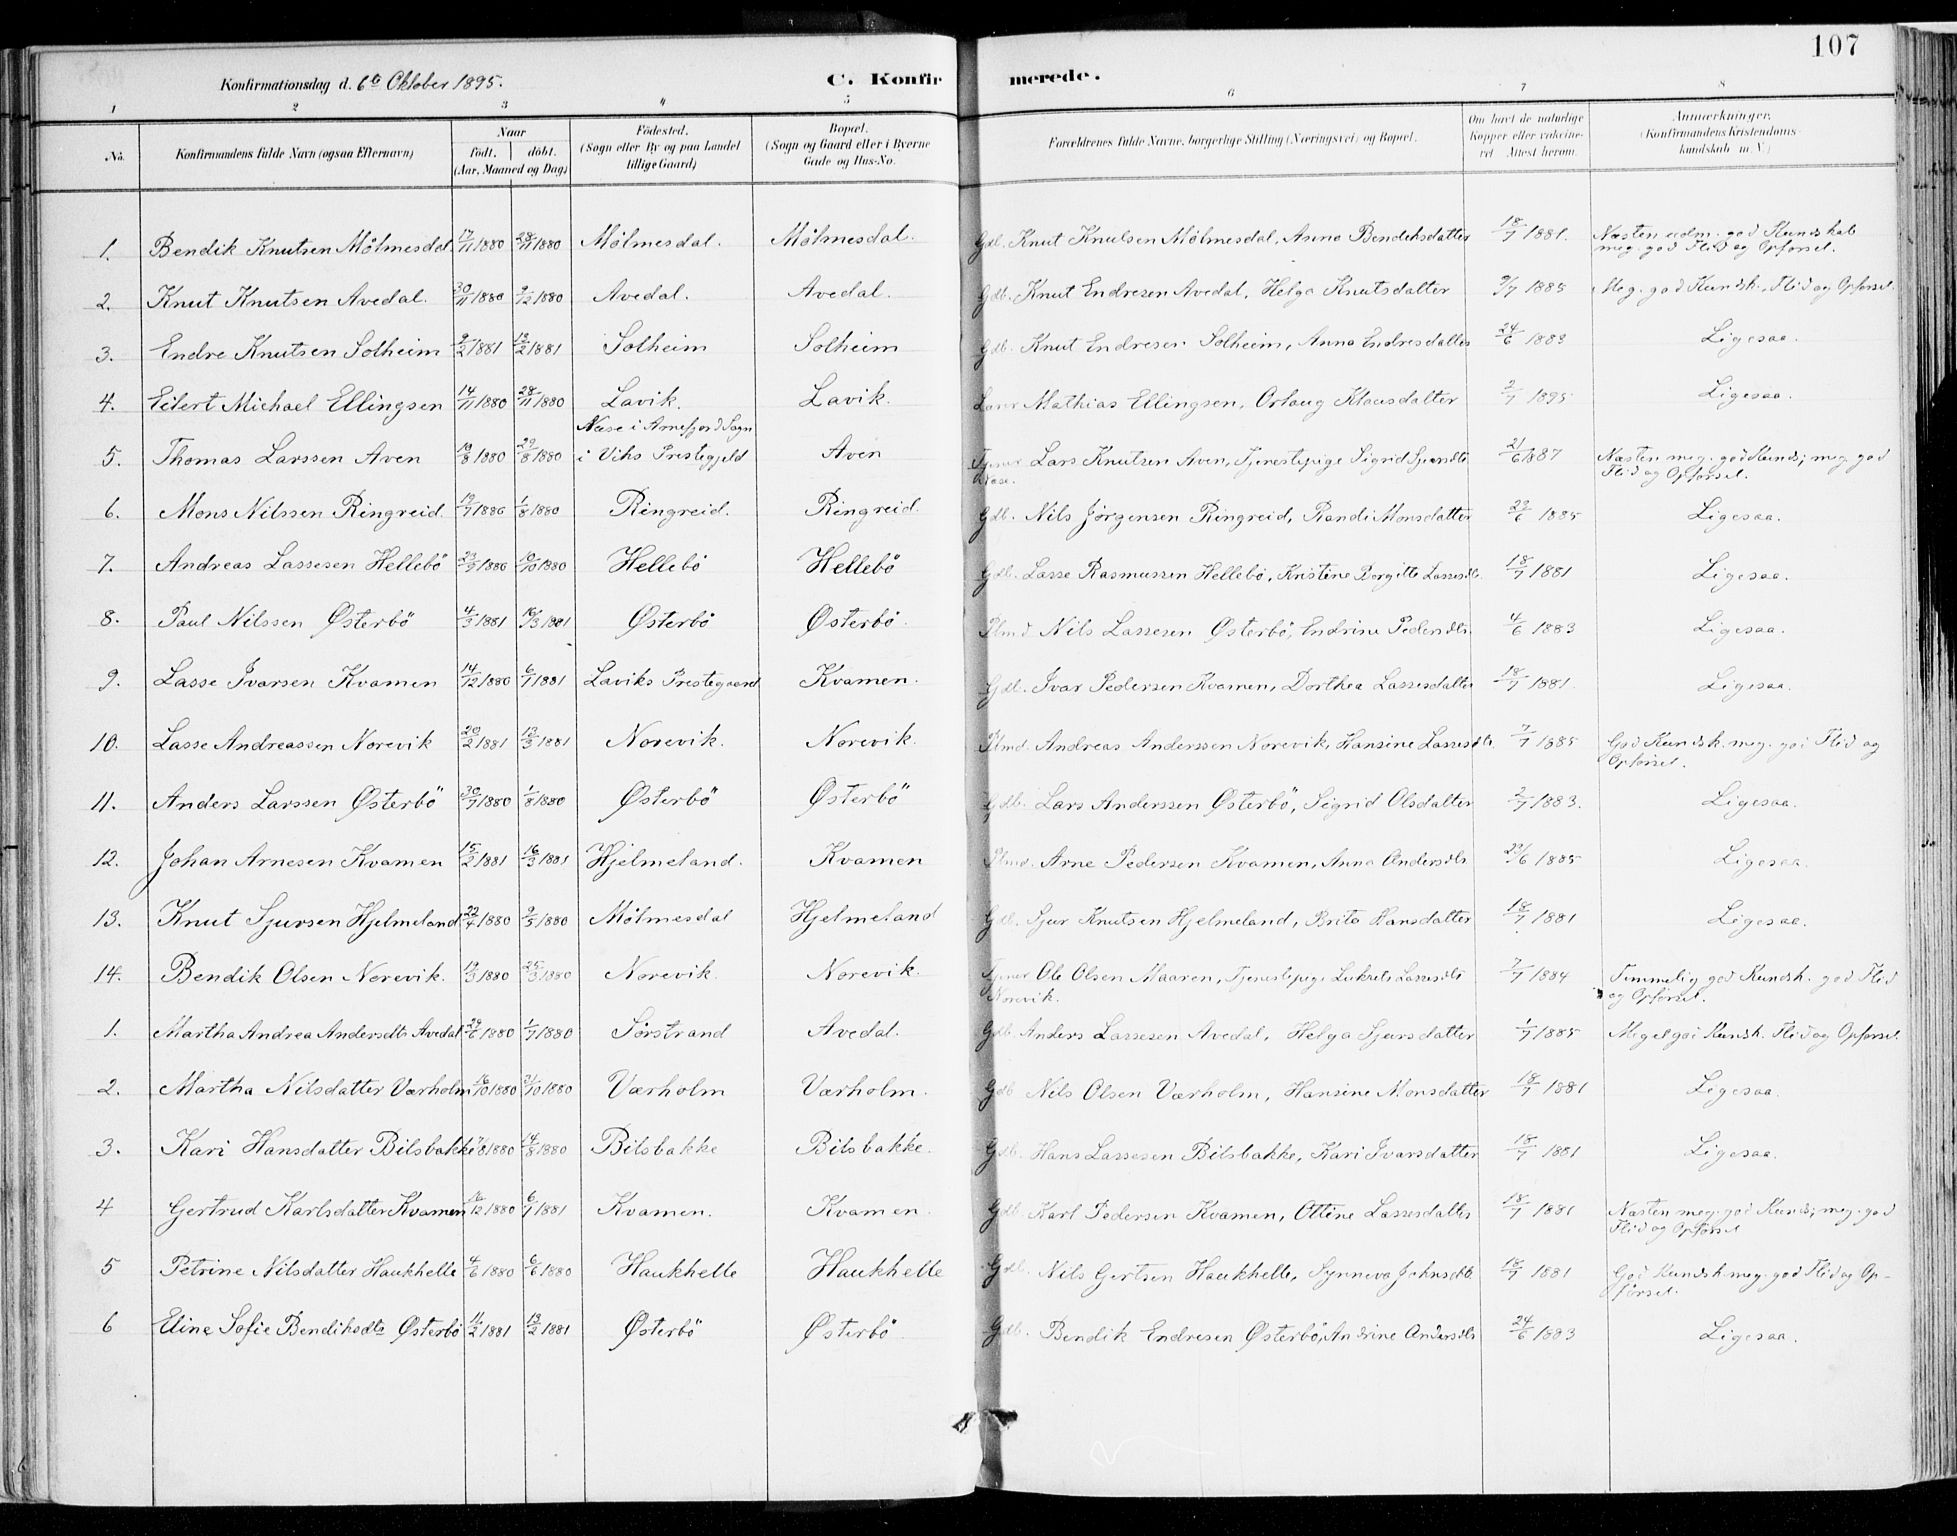 107
Konfirmationsdag d. 6te Oktober 1895.
C. Konfirmerede.
1 2 3 4 5 6 7 8
No. Konfirmandens fulde Navn (ogsaa Efternavn) Naar født. døbt. (Aar, Maaned og Dag) Fødested. (Sogn eller By og paa Landet tillige Gaard) Bopæl. (Sogn og Gaard eller i Byerne Gade og Hus-No. Forældrenes fulde Navne, borgerlige Stilling (Næringsvei) og Bopæl. Om havt de naturlige Kopper eller vaccineret. Attest herom. Anmærkninger. (Konfirmandens Kristendomskundskab m.V.)
1. Bendik Knutsen Mölmesdal 17/11 1880 28/11 1880 Mölmesdal. Mölmesdal. Gdb. Knut Knutsen Mölmesdal, Anna Bendiksdatter 18/7 1881. Næsten udm. god Kundskab meg. god Flid og Opförsel.
2. Knut Knutsen Avedal. 30/11 1880 9/12 1880 Avedal. Avedal. Gdb. Knut Endresen Avedal, Helga Knutsdatter 9/7 1885 Meg. god Kundsk., Flid og Opförsel.
3. Endre Knutsen Solheim 9/2 1881 13/2 1881 Solheim Solheim Gdb. Knut Endresen Solheim, Anna Endresdatter 24/6 1883 Ligesaa.
4. Eilert Michael Ellingsen 14/11 1880 28/11 1880 Lavik. Lavik. Mathias Ellingsen, Orlaug Klausdatter 2/7 1895 Ligesaa.
5. Thomas Larssen Aven 19/8 1880 29/8 1880 Næse i Arnefjord Sogn i Viks Prestegjeld Aven Tjener Lars Knutsen Aven, Tjenestepige Sigrid Næse. 21/6 1887 Næsten meg. god Kunds; meg. god Flid og Opförsel.
6. Mons Nilssen Ringreid. 19/7 1880 1/8 1880 Ringreid. Ringreid. Gdb. Nils Jörgensen Ringreid, Randi Monsdatter 22/6 1885 Ligesaa.
7. Andreas Lassesen Hellebö 23/9 1880 10/10 1880 Hellebö Hellebö Gdb. Lasse Rasmussen Hellebö, Kristine Borgitte Lassesdtr. 18/7 1881 Ligesaa.
8. Paul Nilssen Østerbö 4/3 1881 16/3 1881 Østerbö Østerbö. Plmd Nils Lassesen Østerbö, Endrine Pedersdtr. 4/6 1883 Ligesaa.
9. Lasse Ivarsen Kvamen 14/12 1880 6/1 1881 Laviks Prestegaard Kvamen. Gdb. Ivar Pedersen Kvamen, Dorthea Lassesdatter 18/7 1881. Ligesaa.
10. Lasse Andreassen Norevik 20/2 1881 13/3 1881 Norevik. Norevik. Plmd. Andreas Anderssen Norevik, Hansine Lassesdtr. 7/7 1885 God Kundsk. meg. god Flid og Opförsel.
11. Anders Larssen Østerbö 30/7 1880 1/8 1880 Østerbö Østerbö Gdb. Lars Anderssen Østerbö, Sigrid Olsdatter 2/7 1883. Ligesaa.
12. Johan Arnesen Kvamen 15/2 1881 16/3 1881 Hjelmeland. Kvamen Plmd. Arne Pedersen Kvamen, Anna Andersdtr. 23/6 1885 Ligesaa.
13. Knut Sjursen Hjelmeland 22/4 1880 9/5 1880 Mölmesdal Hjelmeland Gdb. Sjur Knutsen Hjelmeland, Brita Hansdatter 18/7 1881 Ligesaa.
14. Bendik Olsen Norevik. 19/3 1880 25/3 1880 Norevik. Norevik. Tjener Ole Olsen Maaren, Tjenestepige Lukrets Lassesdtr Norevik. 7/7 1884 Temmelig god Kundsk. god Flid og Opförsel.
1. Martha Andrea Andersdtr Avedal 29/6 1880 1/7 1880 Sörstrand Avedal. Gdb Anders Lassesen Avedal, Helga Sjursdatter 1/7 1885 Meget god Kundsk. Flid og Opförsel.
2. Martha Nilsdatter Værholm 16/10 1880 31/10 1880 Værholm Værholm. Gdb Nils Olsen Værholm, Hansine Monsdatter 18/7 1881 Ligesaa.
3. Kari Hansdatter Bilsbakke 8 1880 14/8 1880 Bilsbakke Bilsbakke. Gdb. Hans Lassesen Bilsbakke, Kari Ivarsdatter 18/7 1881 Ligesaa.
4 Gertrud Karlsdatter Kvamen 16/12 1880 6/1 1881 Kvamen. Kvamen. Gdb. Karl Pedersen Kvamen, Ottine Lassesdatter 18/7 1881 Næsten meg. god Kunds; meg. god Flid og Opförsel
5 Petrine Nilsdatter Haukhelle 4/6 1880 6/6 1880 Haukhelle Haukhelle Gdb. Nils Gertsen Haukhelle, Synneva Johnsdtr. 18/7 1881 God Kundsk. meg. god Flid og Opförsel.
6 Eline Sofie Bendiksdtr Østerbö 11/2 1881 13/2 1881 Østerbö Østerbö Gdb. Bendik Endresen Østerbö, Andrine Andersdtr 24/6 1883 Ligesaa.